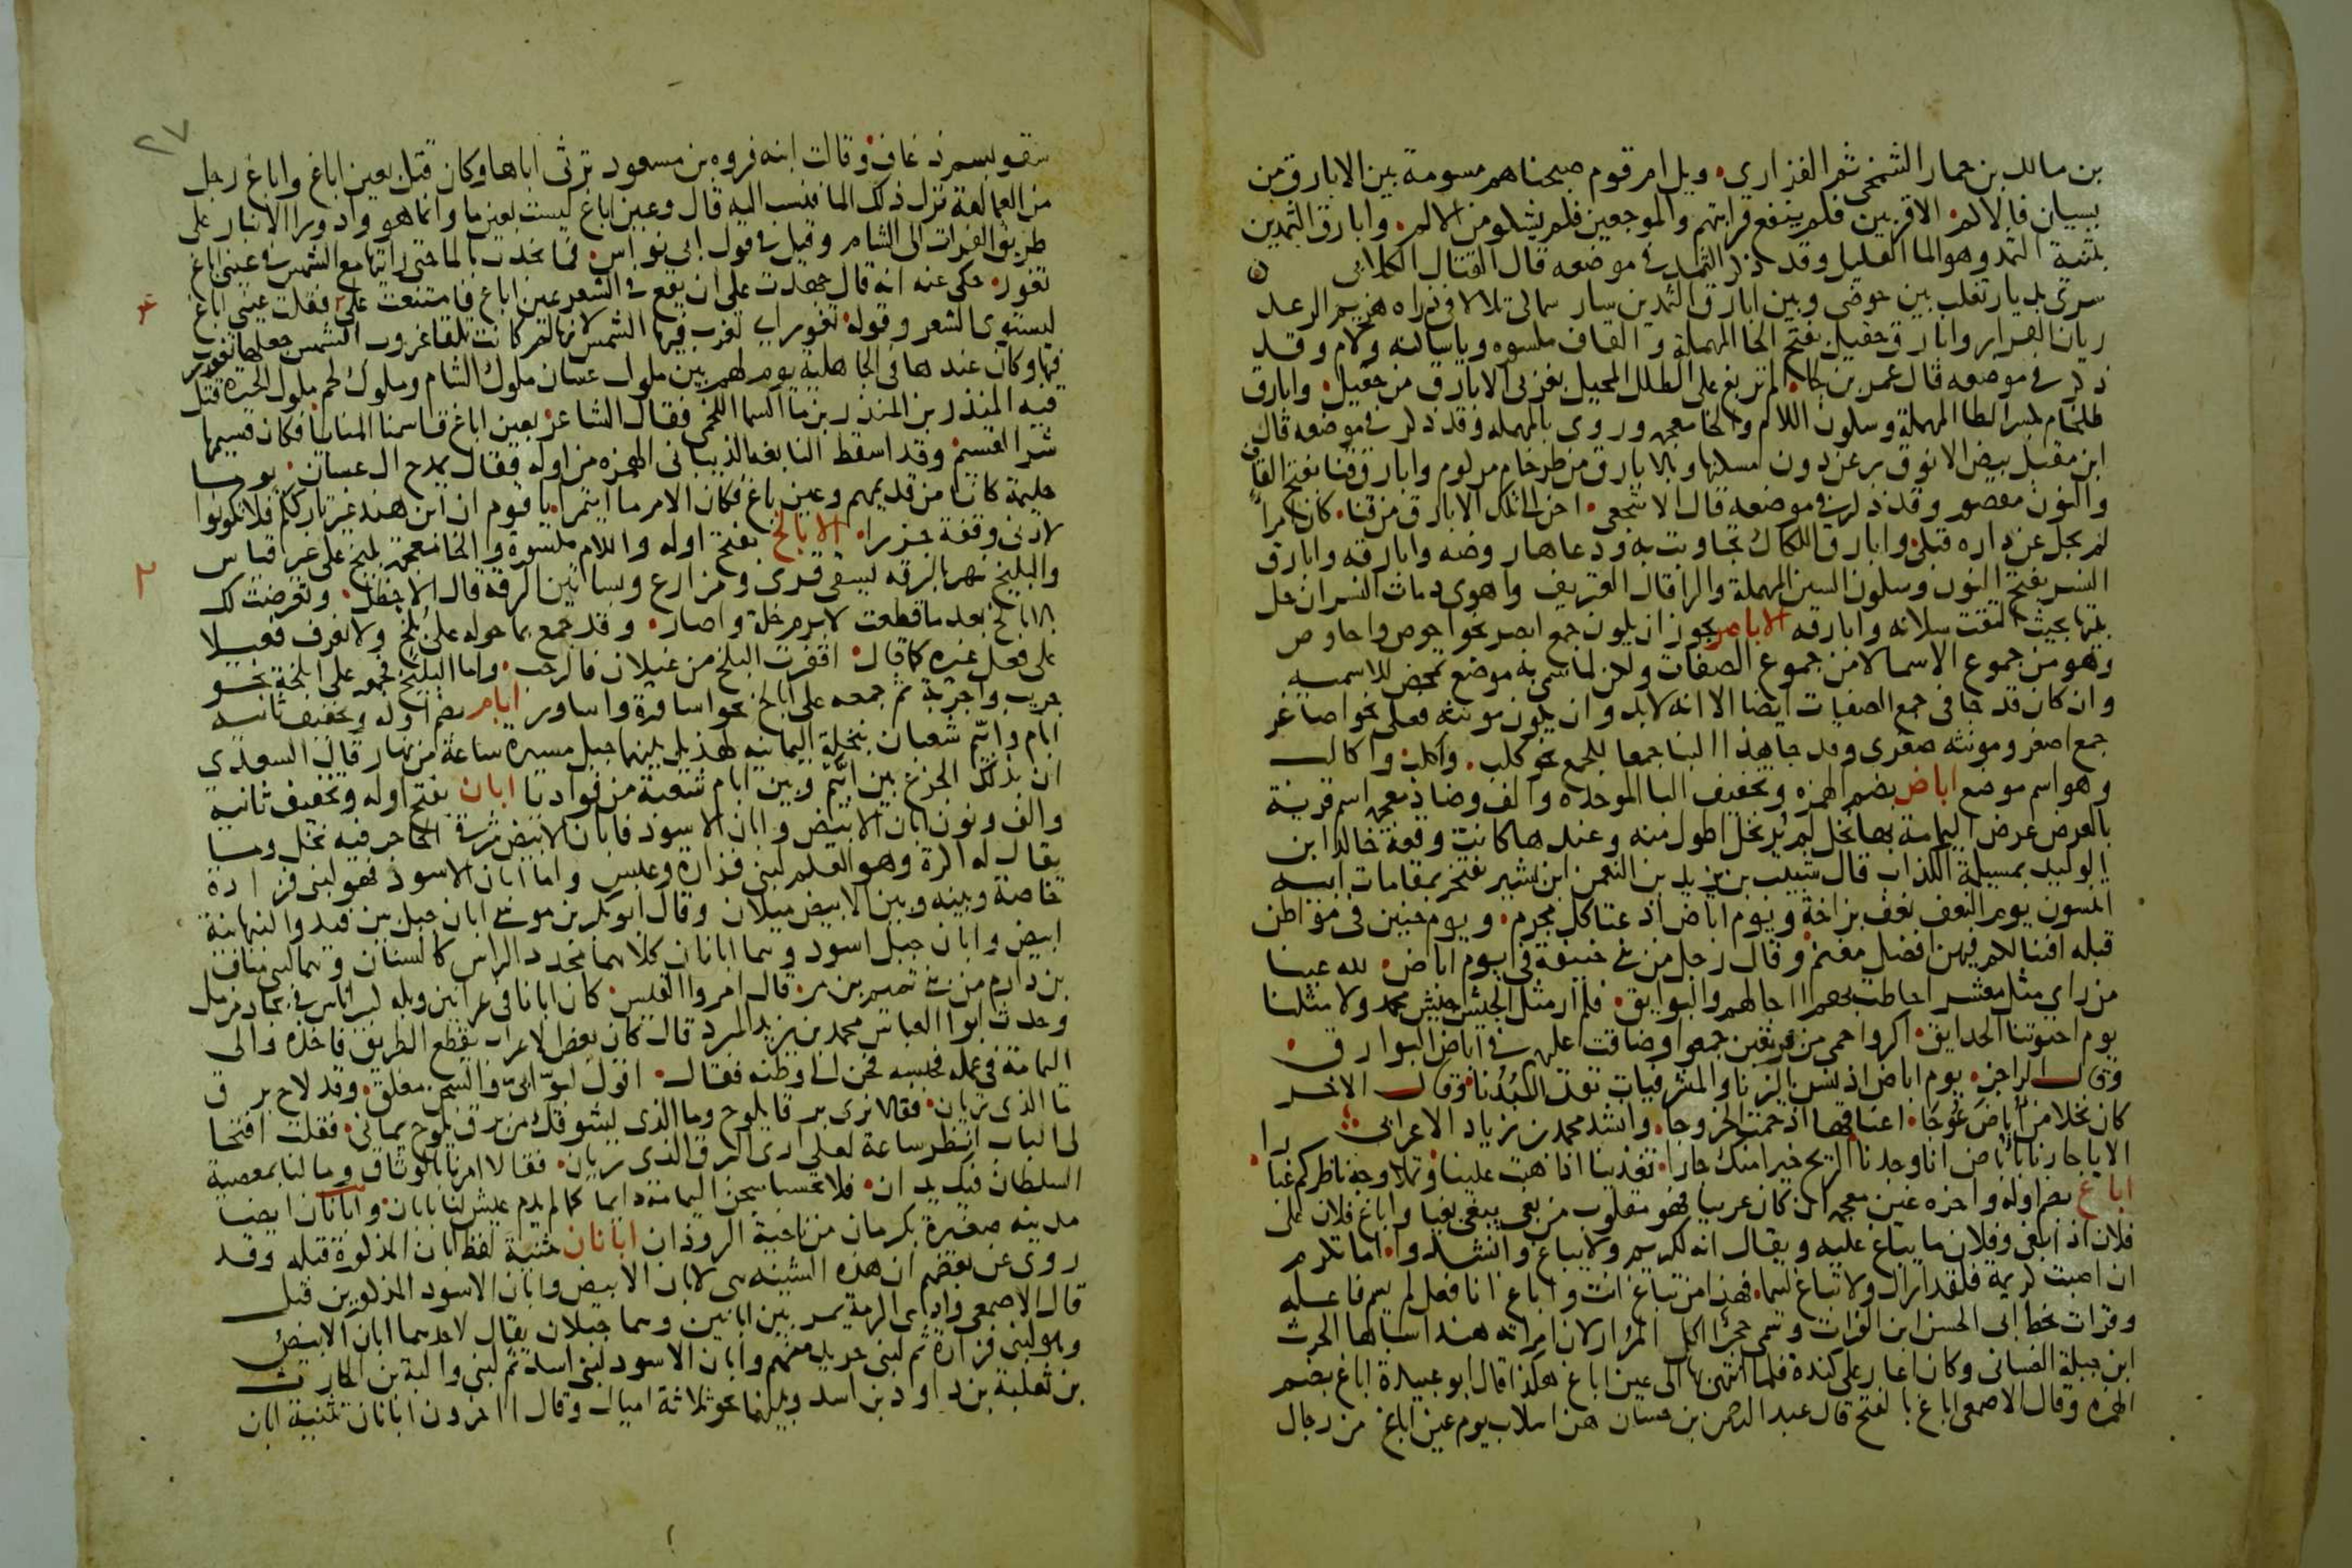 بن مالك بن حمار الشمخي ثم الفزاري. ويل ام قوم صبحناهم مسومة بين الابارق من
بسيان فالاكم. الاقربين فلم ينفع قرابتهم والموجعين فلم يشكو من الالم. وابارق الثمدين
بتثنية الثمد وهو الما القليل وقد ذكر الثمد في موضعه قال القتال الكلابي
سرى بديار تغلب بين حوضى وبين ابارق الثمدين سار سماكي تلالا في ذراه هزيم الرعد
ريان القرار وابارق حقيل بفتح الحا المهملة والقاف مكسوره ويا ساكنه ولام وقد
ذكر في موضعه قال عمر بن لجا. الم تربع على الطلل المحيل بغربي الابارق من حقيل. وابارق
طلخام بكسر الطا المهملة وسكون اللام والخا معجمه وروى بالمهمله وقد ذكر في موضعه قال
ابن مقبل بيض الانوق برعن دون مسكنها وبالابارق من طرخام مركوم وابارق قنا بفتح القاف
والنون مقصور وقد ذكر في موضعه قال الاشجعي. احن الى تلك الابارق من قنا. كان امرا
لم يجل عن داره قبلي وابارق اللكاك تجاوبت به ودعاها روضه وابارقه وابارق
النسر بفتح النون وسكون السين المهملة والرا قال العتريف واهوى دماث النسر ان حل
بيتها بحيث التقت سلانه وابارقه الاباصر يجوز ان يكون جمع ابصر نحو احوص واحاوص
وهو من جموع الاسما لا من جموع الصفات ولكن لما سمى به موضع تمحض للاسمية
وان كان قد جا في جمع الصفات ايضا الا انه لابد وان يكون مونثه فعلى نحو اصاغر
جمع اصغر ومونثه صغرى وقد جا هذا البنا جمعا للجمع نحو كلب. واكلب واكالب
وهو اسم موضع اباض بضم الهمزه وتخفيف البا الموحده والف وضاد معجمه اسم قرية
بالعرض عرض اليمامة بها نخل لم ير نخل اطول منه وعندها كانت وقعة خالد ابن
الوليد بمسيلمة الكذاب قال شبيب بن يزيد بن النعمن ابن بشير يفتخر بمقامات ابيه
اتنسون يوم النعف نعف بزاخة ويوم اباض اذ عتا كل مجرم. ويوم حنين في مواطن
قبله افنا لكم فيهن افضل مغنم وقال رجل من بني حنيفة في ايوم اباض. لله عينا
من راى مثل معشر احاطت بهم اجالهم والبوايق. فلم ار مثل الجيش جيش محمد ولا مثلنا
يوم احتوتنا الحدايق. اكر واحمى من فريقين جمعوا وضاقت عليهم في اباض البوارق.
وقال الراجز. يوم اباض اذ نسن اليزنا والمشرفيات تقد البدنا. وقال الاخر
كان نخلا من اباض عوجا. اعناقها اذ حمت الخروجا. وانشد محمد بن زياد الاعرابي
الا يا جارنا باباض انا وجدنا الريح خيرا منك جارا. تغذينا اذا هبت علينا وتملا وجه ناظركم غبارا
اباغ بضم اوله واخره غين معجمه ان كان عربيا فهو مقلوب من بغى يبغي بغيا واباغ فلان على
فلان اذا بغى وفلان ما يباغ عليه ويقال انه لكريم ولا يباغ وانشدوا. اما تكرم
ان اصبت كريمة فلقد اراك ولا تباغ لئيما. فهذا من تباغ انت واباغ انا فعل لم يسم فاعله
وقرات بخط ابي الحسن ابن الفرات وسمى حجرا اكل المرار لان امراته هندا سباها الحرث
ابن جبلة الغساني وكان اغار على كندة فلما انتهى بها الى عين اباغ هكذا قال ابو عبيدة اباغ بضم
الهمزه وقال الاصمعي اباغ بالفتح قال عبد الرحمن بن حسان هن اسلاب يوم عين اباغ من رجال
٢٧
سقوا بسم ذعاف. وقالت ابنه فروه بن مسعود ترثي اباها وكان قتل بعين اباغ واباغ رجل
من العمالقة نزل ذلك الما فنسب اليه قال وعين اباغ ليست بعين ما وانما هو وادورا الانبار على
طريق الفرات الى الشام وقيل في قول ابي نواس. فما نجدت بالما حتى رايتها مع الشمس في عيني اباغ
تغور. حكى عنه انه قال جهدت على ان يقع في الشعر عين اباغ فامتنعت علي فقلت عيني اباغ
ليستوي الشعر وقوله تغور اي تغرب فيها الشمس لانها لما كانت تلقا غروب الشمس جعلها تغور
فيها وكان عندها في الجاهلية يوم لهم بين ملوك غسان ملوك الشام وملوك لخم ملوك الحيرة قتل
فيه المنذر بن المنذر بن ما السما اللخمي فقال الشاعر بعين اباغ قاسمنا المنايا فكان قسيمها
شر القسيم. وقد اسقط النابغه الذبياني الهمزه من اوله فقال يمدح ال غسان. يوما
حليمة كانا من قديمهم وعين باغ فكان الامر ما ايتمرا. يا قوم ان ابن هند غير تارككم فلا تكونوا
لادنى وقفة جزرا. الابالخ بفتح اوله واللام مكسورة والخا معجمة بليخ على غير قياس
والبليخ نهر بالرقه يسقي قرى ومزارع وبساتين الرقة قال الاخطل. وتعرضت لك
بالابالخ بعد ما قطعت لابرم خلة واصار. وقد جمع بما حوله على بلخ ولا نعرف فعيلا
على فعل غيره كما قال. اقفرت البلخ من غيلان فالرحب. واما البليخ فجمع على ابلخة نحو
جريب واجربة ثم جمعه على ابالخ نحو اساورة واساور ابام بضم اوله وتخفيف ثانيه
ابام وابيم شعبان بنخلة اليمانيه لهذيل بينهما جبل مسيرة ساعة من نهار قال السعدي
ان بذلك الجزع بين ابيم وبين ابام شعبة من فواديا ابان بفتح اوله وتخفيف ثانيه
والف ونون ابان الابيض وابان الاسود فابان الابيض شرقي الحاجر فيه نخل وما
يقال له اكرة وهو العلم لبني فزارة وعبس واما ابان الاسود فهو لبني فزارة
خاصة وبينه وبين الابيض ميلان وقال ابو بكر بن موسى ابان جبل بين فيد والنبهانية
ابيض وابان جبل اسود وهما ابانان كلاهما محدد الراس كالسنان وهما لبني مناف
بن دارم من بني تميم بن مر. قال امروا القيس. كان ابانا في عرانين وبله كبير اناس في بجاد مزمل
وحدث ابوا العباس محمد بن يزيد المبرد قال كان بعض الاعراب يقطع الطريق فاخذه والي
اليمامة في عمله فحبسه فحن الى وطنه فقال. اقول لبوابي والسجن مغلق. وقد لاح برق
ما الذي تريان. فقالا نرى برقا يلوح وما الذي يشوقك من برق يلوح يماني. فقلت افتحا
لي الباب انظر ساعة لعلي ارى البرق الذي تريان. فقالا امرنا بالوثاق وما لنا بمعصية
السلطان فيك يدان. فلا تحسبا سجن اليمامة دايما كما لم يدم عيش لنا بابان. وابانان ايضا
مدينه صغيرة بكرمان من ناحية الروذان ابانان تثنية لفظ ابان المذكورة قبله وقد
روى عن بعضهم ان هذه التثنيه هي لابان الابيض وابان الاسود المذكورين قبل
قال الاصمعي وادي الرمة يمر بين ابانين وهما جبلان يقال لاحدهما ابان الابيض
وهو لبني فزارة ثم لبني جريد منهم وابان الاسود لبني اسد ثم لبني والبة بن الحارث
بن ثعلبة بن داود بن اسد وبينهما نحو ثلاثة اميال وقال الاخرون ابانان تثنية ابان